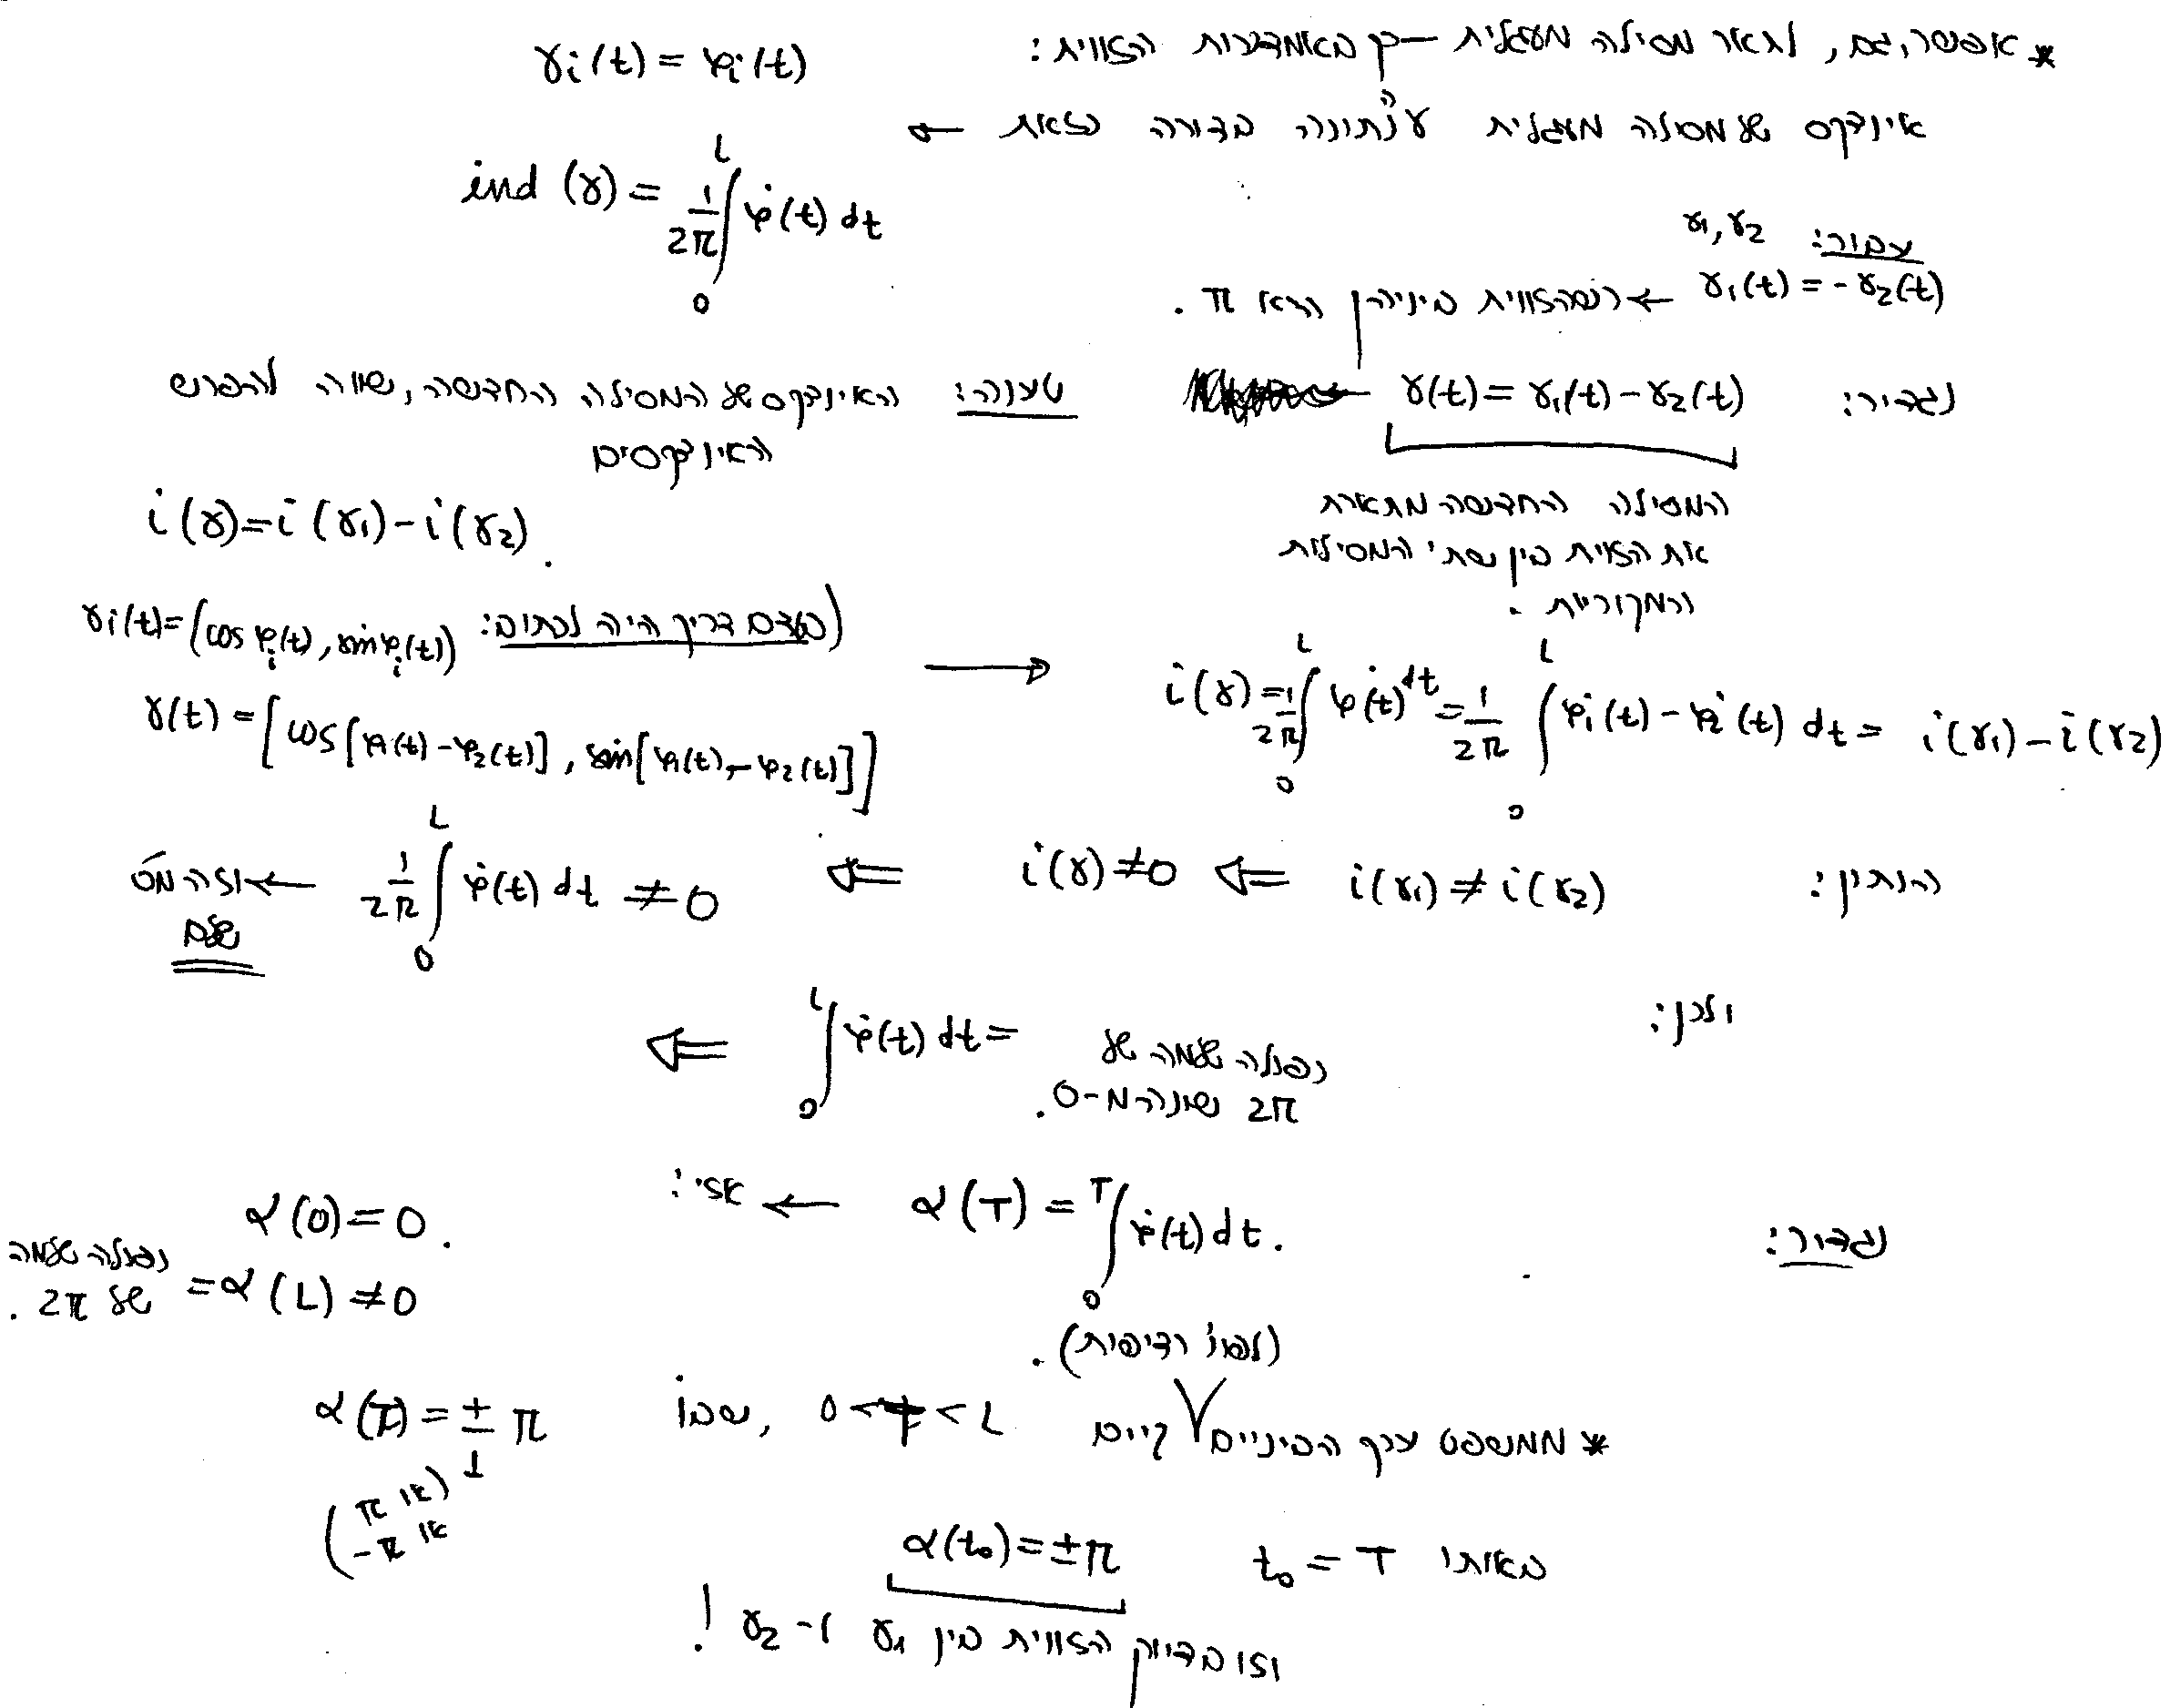 * אפשר, גם, לתאר מסילה מעגלית – כך באמצעות הזווית: γi(t) = φi(t)
אינדקס של מסילה מעגלית הנתונה בצורה כזאת ← ind (γ) = 1/2π ∫₀ᴸ φ̇(t) dt
עבור: γ1, γ2
γ1(t) = -γ2(t) ← כשהזווית ביניהן היא π.
נגדיר: γ(t) = γ1(t) - γ2(t)
המסילה החדשה מתארת
את הזוית בין שתי המסילות
המקוריות.
טענה: האינדקס של המסילה החדשה, שווה להפרש
האינדקסים
i(γ) = i(γ1) - i(γ2).
(בעצם צריך היה לכתוב: γi(t) = (cos φi(t), sin φi(t))
γ(t) = [cos[φ1(t) - φ2(t)], sin[φ1(t) - φ2(t)]]
→ i(γ) = 1/2π ∫₀ᴸ φ̇(t) dt = 1/2π ∫₀ᴸ φ̇1(t) - φ̇2(t) dt = i(γ1) - i(γ2)
הנתון: i(γ1) ≠ i(γ2) ⇐ i(γ) ≠ 0 ⇐ 1/2π ∫₀ᴸ φ̇(t) dt ≠ 0 ← וזה מס'
שלם
ולכן: ∫₀ᴸ φ̇(t) dt = כפולה שלמה של ⇐
2π שונה מ-0.
נגדיר: α(T) = ∫₀ᵀ φ̇(t) dt. ← אזי: α(0) = 0.
α(L) ≠ 0 = כפולה שלמה
של 2π.
(לפונ' רציפות).
* ממשפט ערך הביניים קיים 0 < T < L, שבו α(T) = ± π
(או π
או -π)
באותו t₀ = T α(t₀) = ±π
וזו בדיוק הזווית בין γ1 ו-γ2!